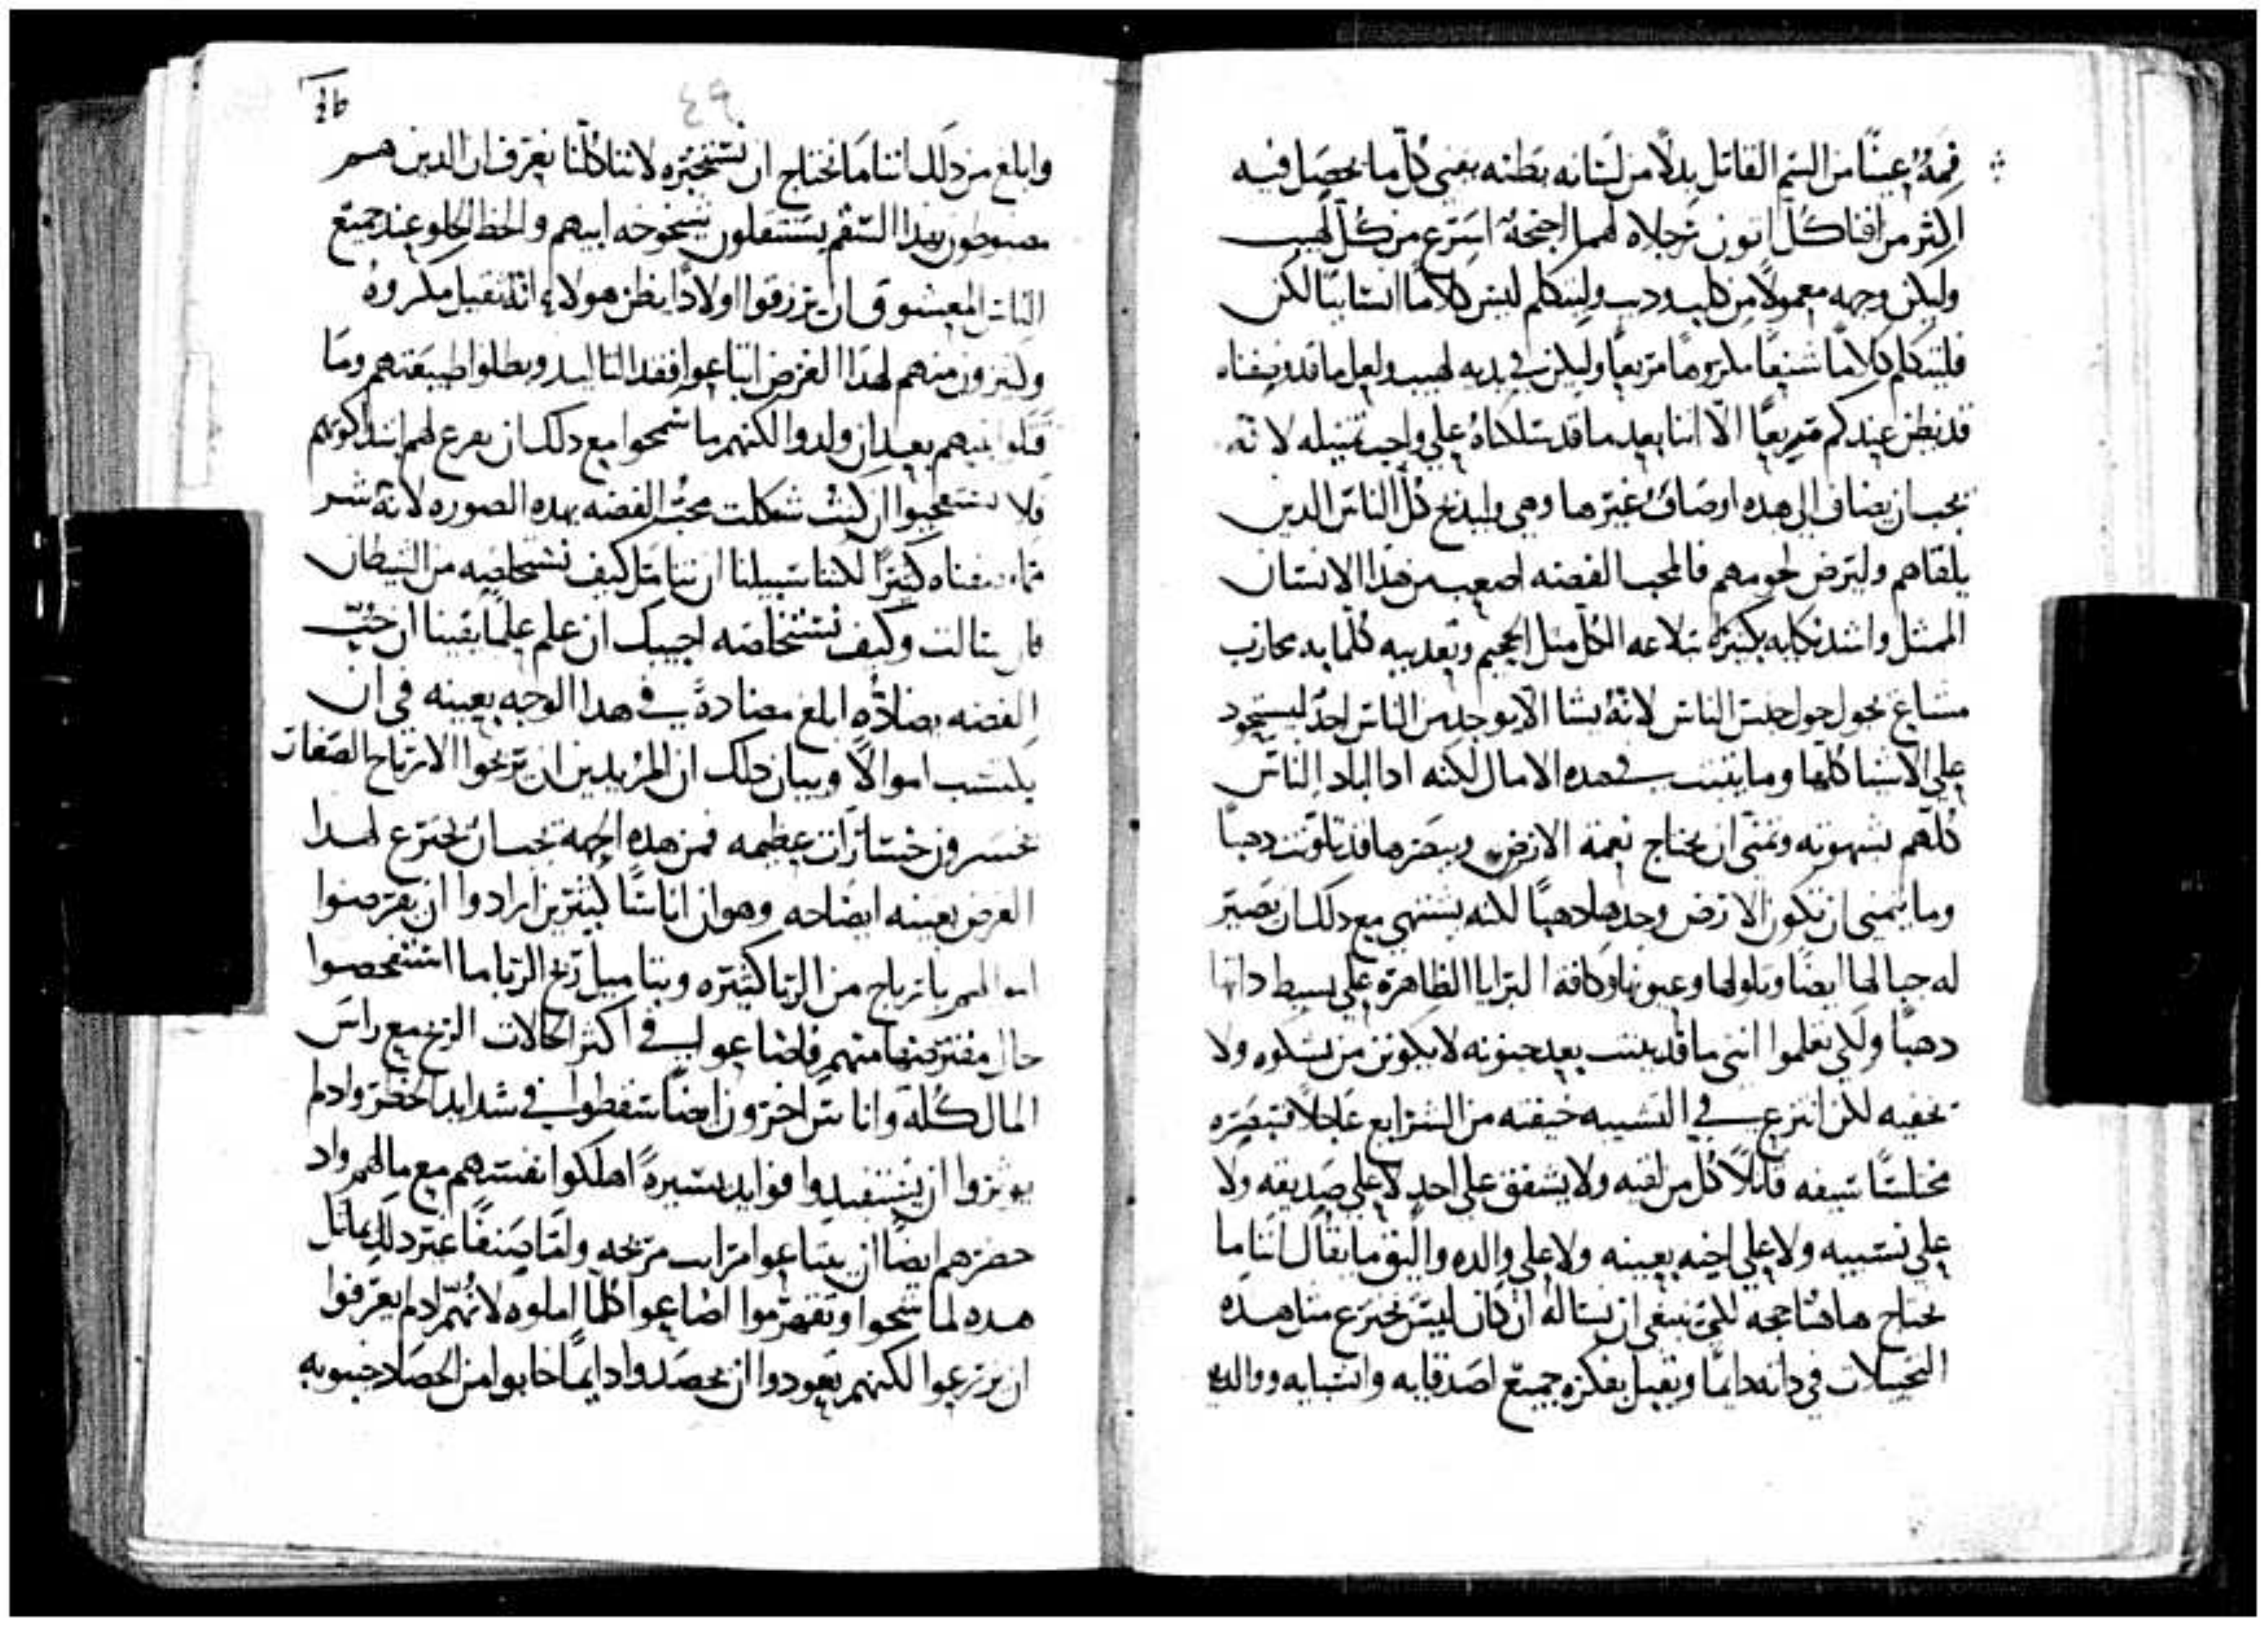 فمه عينًا من السم القاتل بدلًا من لسانه بطنه يفني كل ما يحصل فيه
اكثر من افنا كل اتون رجلاه لهما اجنحة اسرع من كل لهيب
وليكن وجهه معمولًا من كلب وديب وليتكلم ليس كلامًا انسانيًا لكن
فليتكلم كلامًا شنيعًا مكروهًا مريعًا وليكن في يديه لهيب ولعل ما قد وصفناه
قد يظن عندكم مريعًا الا اننا بعد ما قد مثلناه علي واجب تمثيله لانه
يجب ان يضاف الي هذه اوصاف غيرها وهي وليذبح كل الناس الدين
يلقاهم وليرض لحومهم فالمحب الفضه اصعب من هدا الانسان
الممثل واشد نكايه بكثير بلاعه الكل مثل الجحيم
مشاع يجول حول جنس الناس لانه يشا الا يوجد من الناس احد ليستحود
علي الاشيا كلها وما يثبت في هده الامال لكنه ادا اباد الناس
كلهم بشهوته وتمني ان يحتاج نعمة الارض ويبصرها قد تلونت دهبًا
وما يتمني ان تكون الارض وحدها دهبًا لكنه يشتهي مع دلك ان تصير
له جبالها ايضًا وتلولها وعيونها وكافة البرايا الظاهرة علي بسيط داتها
دهبًا ولكي تعلموا انني ما قد بينت بعد جنونه لا يكونن من يشكوه ولا
يخفيه لكن انزع في التشبيه خيفته من الشرايع عاجلًا فتبصره
مختلسًا سيفه قاتلًا كل من لقيه ولا يشفق علي احد لا علي صديقه ولا
علي نسيبه ولا علي اخيه بعينه ولا علي والده واليق ما يقال اننا ما
نحتاج هاهنا حجه لكن ينبغي ان نساله ان كان ليس يخترع مثل هده
التخيلات في داته دايمًا ويقتل بفكره جميع اصدقايه وانسبايه ووالديه
وابلغ من دلك اننا ما نحتاج ان نستخبره لاننا كلنا نعرف ان الدين هم
مضبوطون بهدا السقم يستثقلون شيخوخة ابيهم والحظ الحلو عند جميع
الناس المعشوق ان يرزقوا اولادًا يظن هولاء انه ثقيل مكروه
وكثيرون منهم لهدا الغرض ابتاعوا فقد التاليد وبطلوا طبيعتهم وما
قتلوا بنيهم بعد ان ولدوا لكنهم ما سمحوا مع دلك ان يفرع لهم ابتدا كونهم
فلا تستعجبوا ان كنت شكلت محب الفضه بهده الصوره لانه شر
مما وصفناه كثيرًا لكننا سبيلنا ان نتامل كيف نستخلصه من الشيطان
فان سالت وكيف نستخلصه اجيبك ان علم علمًا يقينا ان حب
الفضه يضاده ابلغ مضادة في هدا الوجه بعينه في ان
يكتسب اموالًا وبيان دلك ان المريدين ان يربحوا الارباح الصغار
يخسرون خسارات عظيمه فمن هده الجهه يجب ان يخترع لهدا
الغرض بعينه ايضاحه وهو ان اناسًا كثيرين ارادوا ان يقرضوا
اموالهم بارباح من الربا كثيره وبتاميل ربح الربا ما استفحصوا
حال مقترضيها منهم فاضاعوا في اكثر الحالات الربح مع راس
المال كله واناس اخرون ايضًا سقطوا في شدايد الخطر واد لم
يوثروا ان يستفيدوا فوايد يسيرة اهلكوا نفسهم مع مالهم واد
حضرهم ايضًا ان يبتاعوا مراتب مربحه واما صنفًا غير دلك يماثل
هده لما شحوا وتفهرموا اضاعوا كلما املوه لانهم اد لم يعرفوا
ان يزرعوا لكنهم يعودوا ان يحصدوا دايمًا خابوا من الحصاد خيبوبه